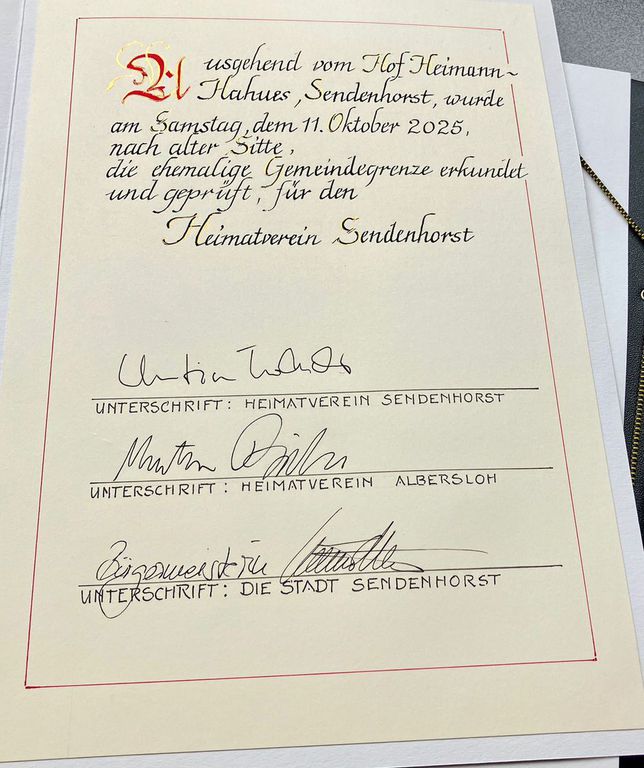 Ausgehend vom Hof Heimann-
Hahues, Sendenhorst, wurde
am Samstag, dem 11. Oktober 2025,
nach alter Sitte,
die ehemalige Gemeindegrenze erkundet
und geprüft, für den
Heimatverein Sendenhorst
UNTERSCHRIFT: HEIMATVEREIN SENDENHORST
UNTERSCHRIFT: HEIMATVEREIN ALBERSLOH
Bürgermeisterin
UNTERSCHRIFT: DIE STADT SENDENHORST